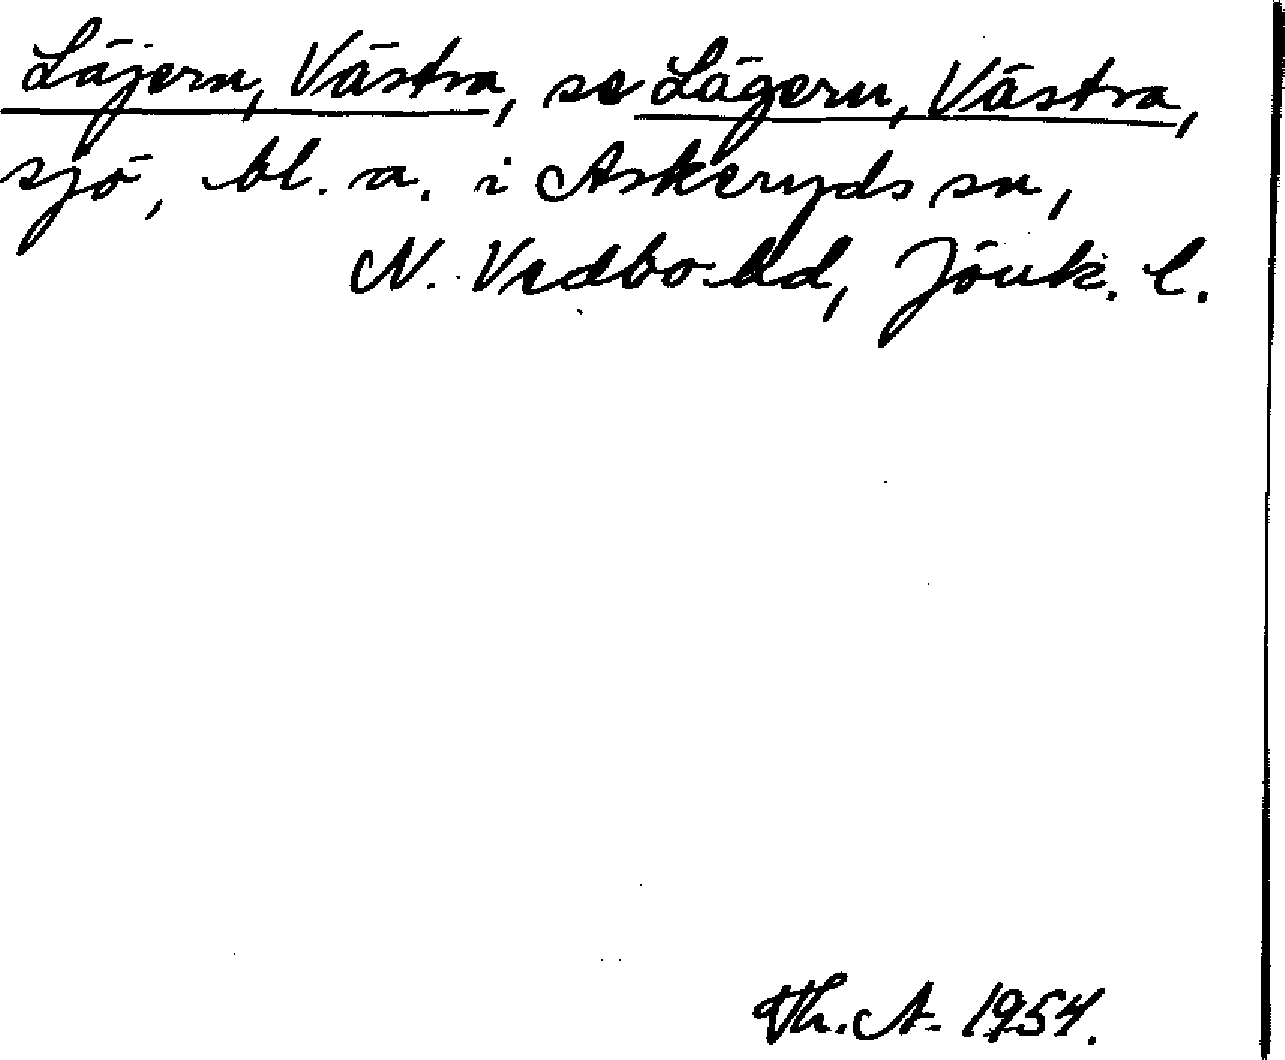 Läjern, Västra, se Lägern, Västra,
sjö, bl. a. i Askeryds sn,
N. Vedbo hd, Jönk. l.
Th. A. 1954.